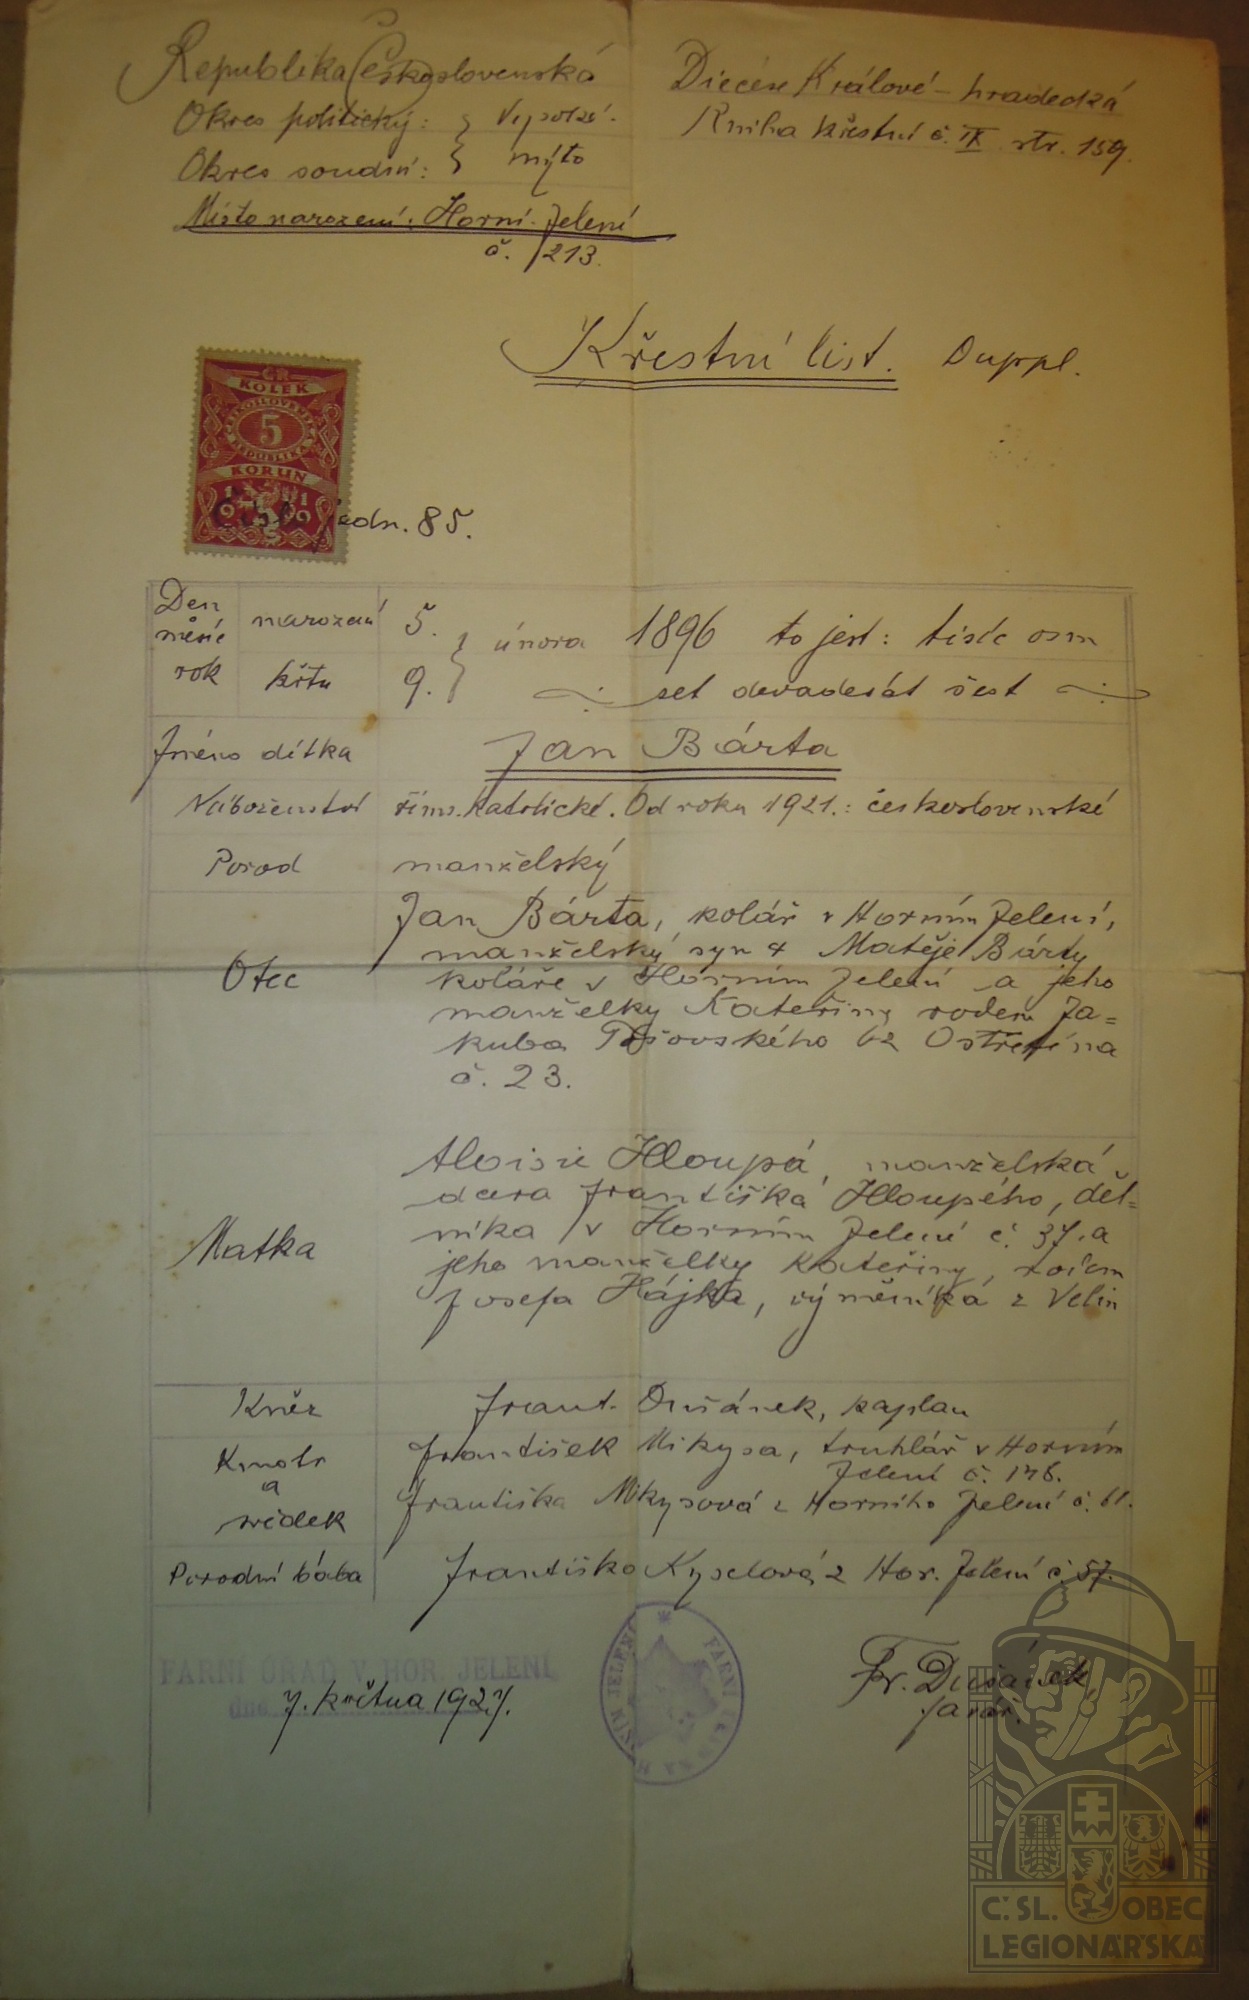 Republika Československá
Okres politický: } Vysoké
Okres soudní: } mýto
Místo narození: Horní Jelení
č. 213.
Diecése Králové-hradecká
Kniha křestní č. IX. str. 159.
Křestní list. Duppl.
KOLEK
5
KORUN
1919
Číslo jedn. 85.
Den měsíc rok
narození 5. } února 1896 to jest: tisíc osm
křtu 9. } set devadesát šest
Jméno dítka Jan Bárta
Náboženství říms. katolické. Od roku 1921.: československé
Porod manželský
Otec
Jan Bárta, kolář v Horním Jelení,
manželský syn + Matěje Bárty
koláře v Horním Jelení a jeho
manželky Kateřiny rodem Ja=
kuba z Ostřetína
č. 23.
Matka
Aloisie Hloupá, manželská
dcera Františka Hloupého, děl=
níka v Horním Jelení č. 37. a
jeho manželky Kateřiny, rozem
Josefa Hájka, výměníka z Velin
Kněz Frant. Dušánek, kaplan
Kmotr a svědek
František Mikysa, truhlář v Horním
Jelení č. 146.
Františka Mikysová z Horního Jelení č. 61.
Porodní bába Františka Kyselová z Hor. Jelení č. 57.
FARNÍ ÚŘAD V HOR. JELENÍ,
dne 7. května 1927.
Fr. Dušánek
farář.
Č. SL. OBEC
LEGIONÁŘSKÁ